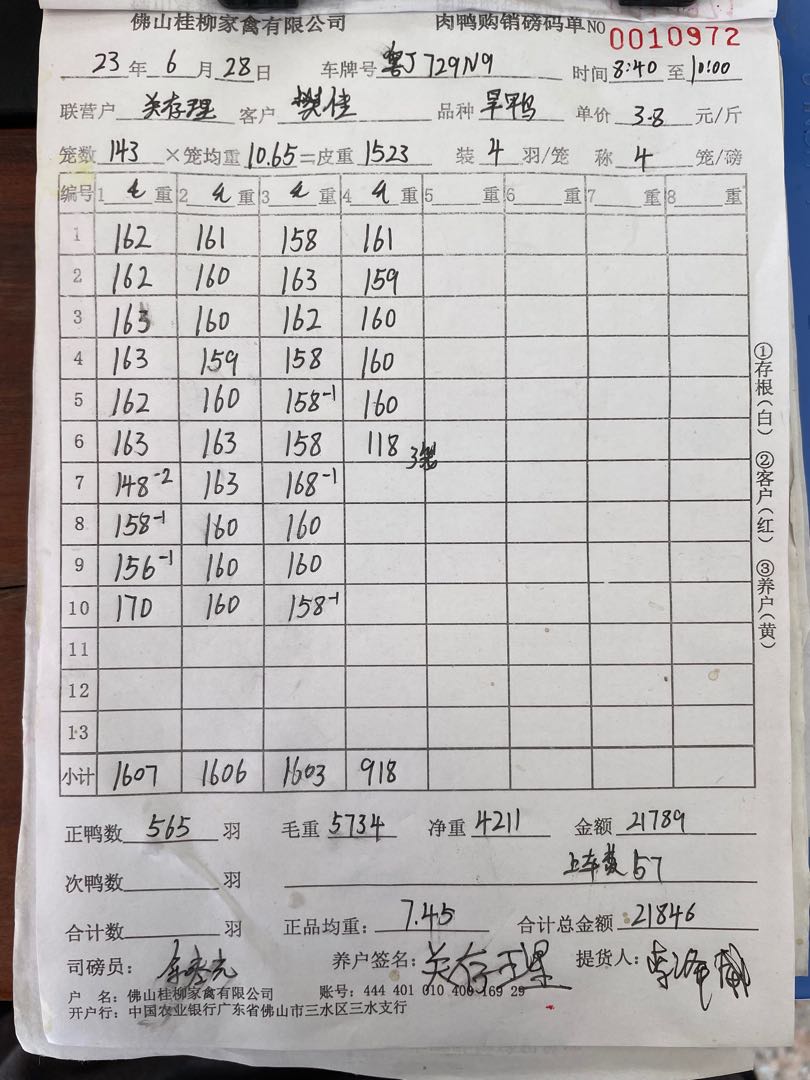 佛山桂柳家禽有限公司 肉鸭购销磅码单 NO 0010972
23 年 6 月 28 日 车牌号 粤J729N9 时间 8:40 至 10:00
联营户 关存理 客户 樊佳 品种 旱鸭 单价 3.8 元/斤
笼数 143 ×笼均重 10.65 =皮重 1523 装 4 羽/笼 称 4 笼/磅
编号 1 毛 重 2 毛 重 3 毛 重 4 毛 重 5 重 6 重 7 重 8 重
1 162 161 158 161
2 162 160 163 159
3 163 160 162 160
4 163 159 158 160
5 162 160 158-1 160
6 163 163 158 118 3笼
7 148-2 163 168-1
8 158-1 160 160
9 156-1 160 160
10 170 160 158-1
11
12
13
小计 1607 1606 1603 918
正鸭数 565 羽 毛重 5734 净重 4211 金额 21789
次鸭数 羽 上车费 57
合计数 羽 正品均重: 7.45 合计总金额 21846
司磅员: 养户签名: 关存理 提货人:
户 名: 佛山桂柳家禽有限公司 账号: 444 401 010 400 169 29
开户行: 中国农业银行广东省佛山市三水区三水支行
①存根(白) ②客户(红) ③养户(黄)